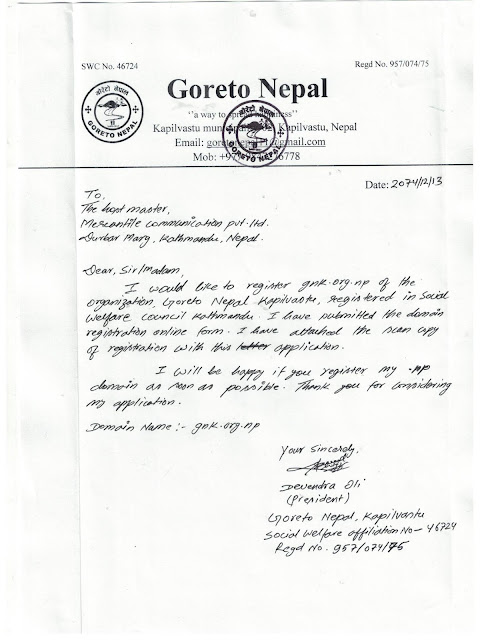 SWC No. 46724
Regd No. 957/074/75
Goreto Nepal
गोरेटो नेपाल
GORETO NEPAL
"a way to spread
Kapilvastu Kapilvastu, Nepal
Email: @gmail.com
Mob: 6778
GORETO NEPAL
Date: 2074/12/13
To,
The host master,
Mercantile communication pvt. ltd.
Durbar Marg, Kathmandu, Nepal.
Dear, Sir/Madam,
I would like to register gnk.org.np of the
organization, Goreto Nepal Kapilvastu, registered in Social
Welfare Council Kathmandu. I have submitted the domain
registration online form. I have attached the scan copy
of registration with this letter application.
I will be happy if you register my .np
domain as soon as possible. Thank you for considering
my application.
Domain Name :- gnk.org.np
Your Sincerely,
Devendra Oli
(President)
Goreto Nepal, Kapilvastu
Social Welfare affiliation No - 46724
Regd No. 957/074/75